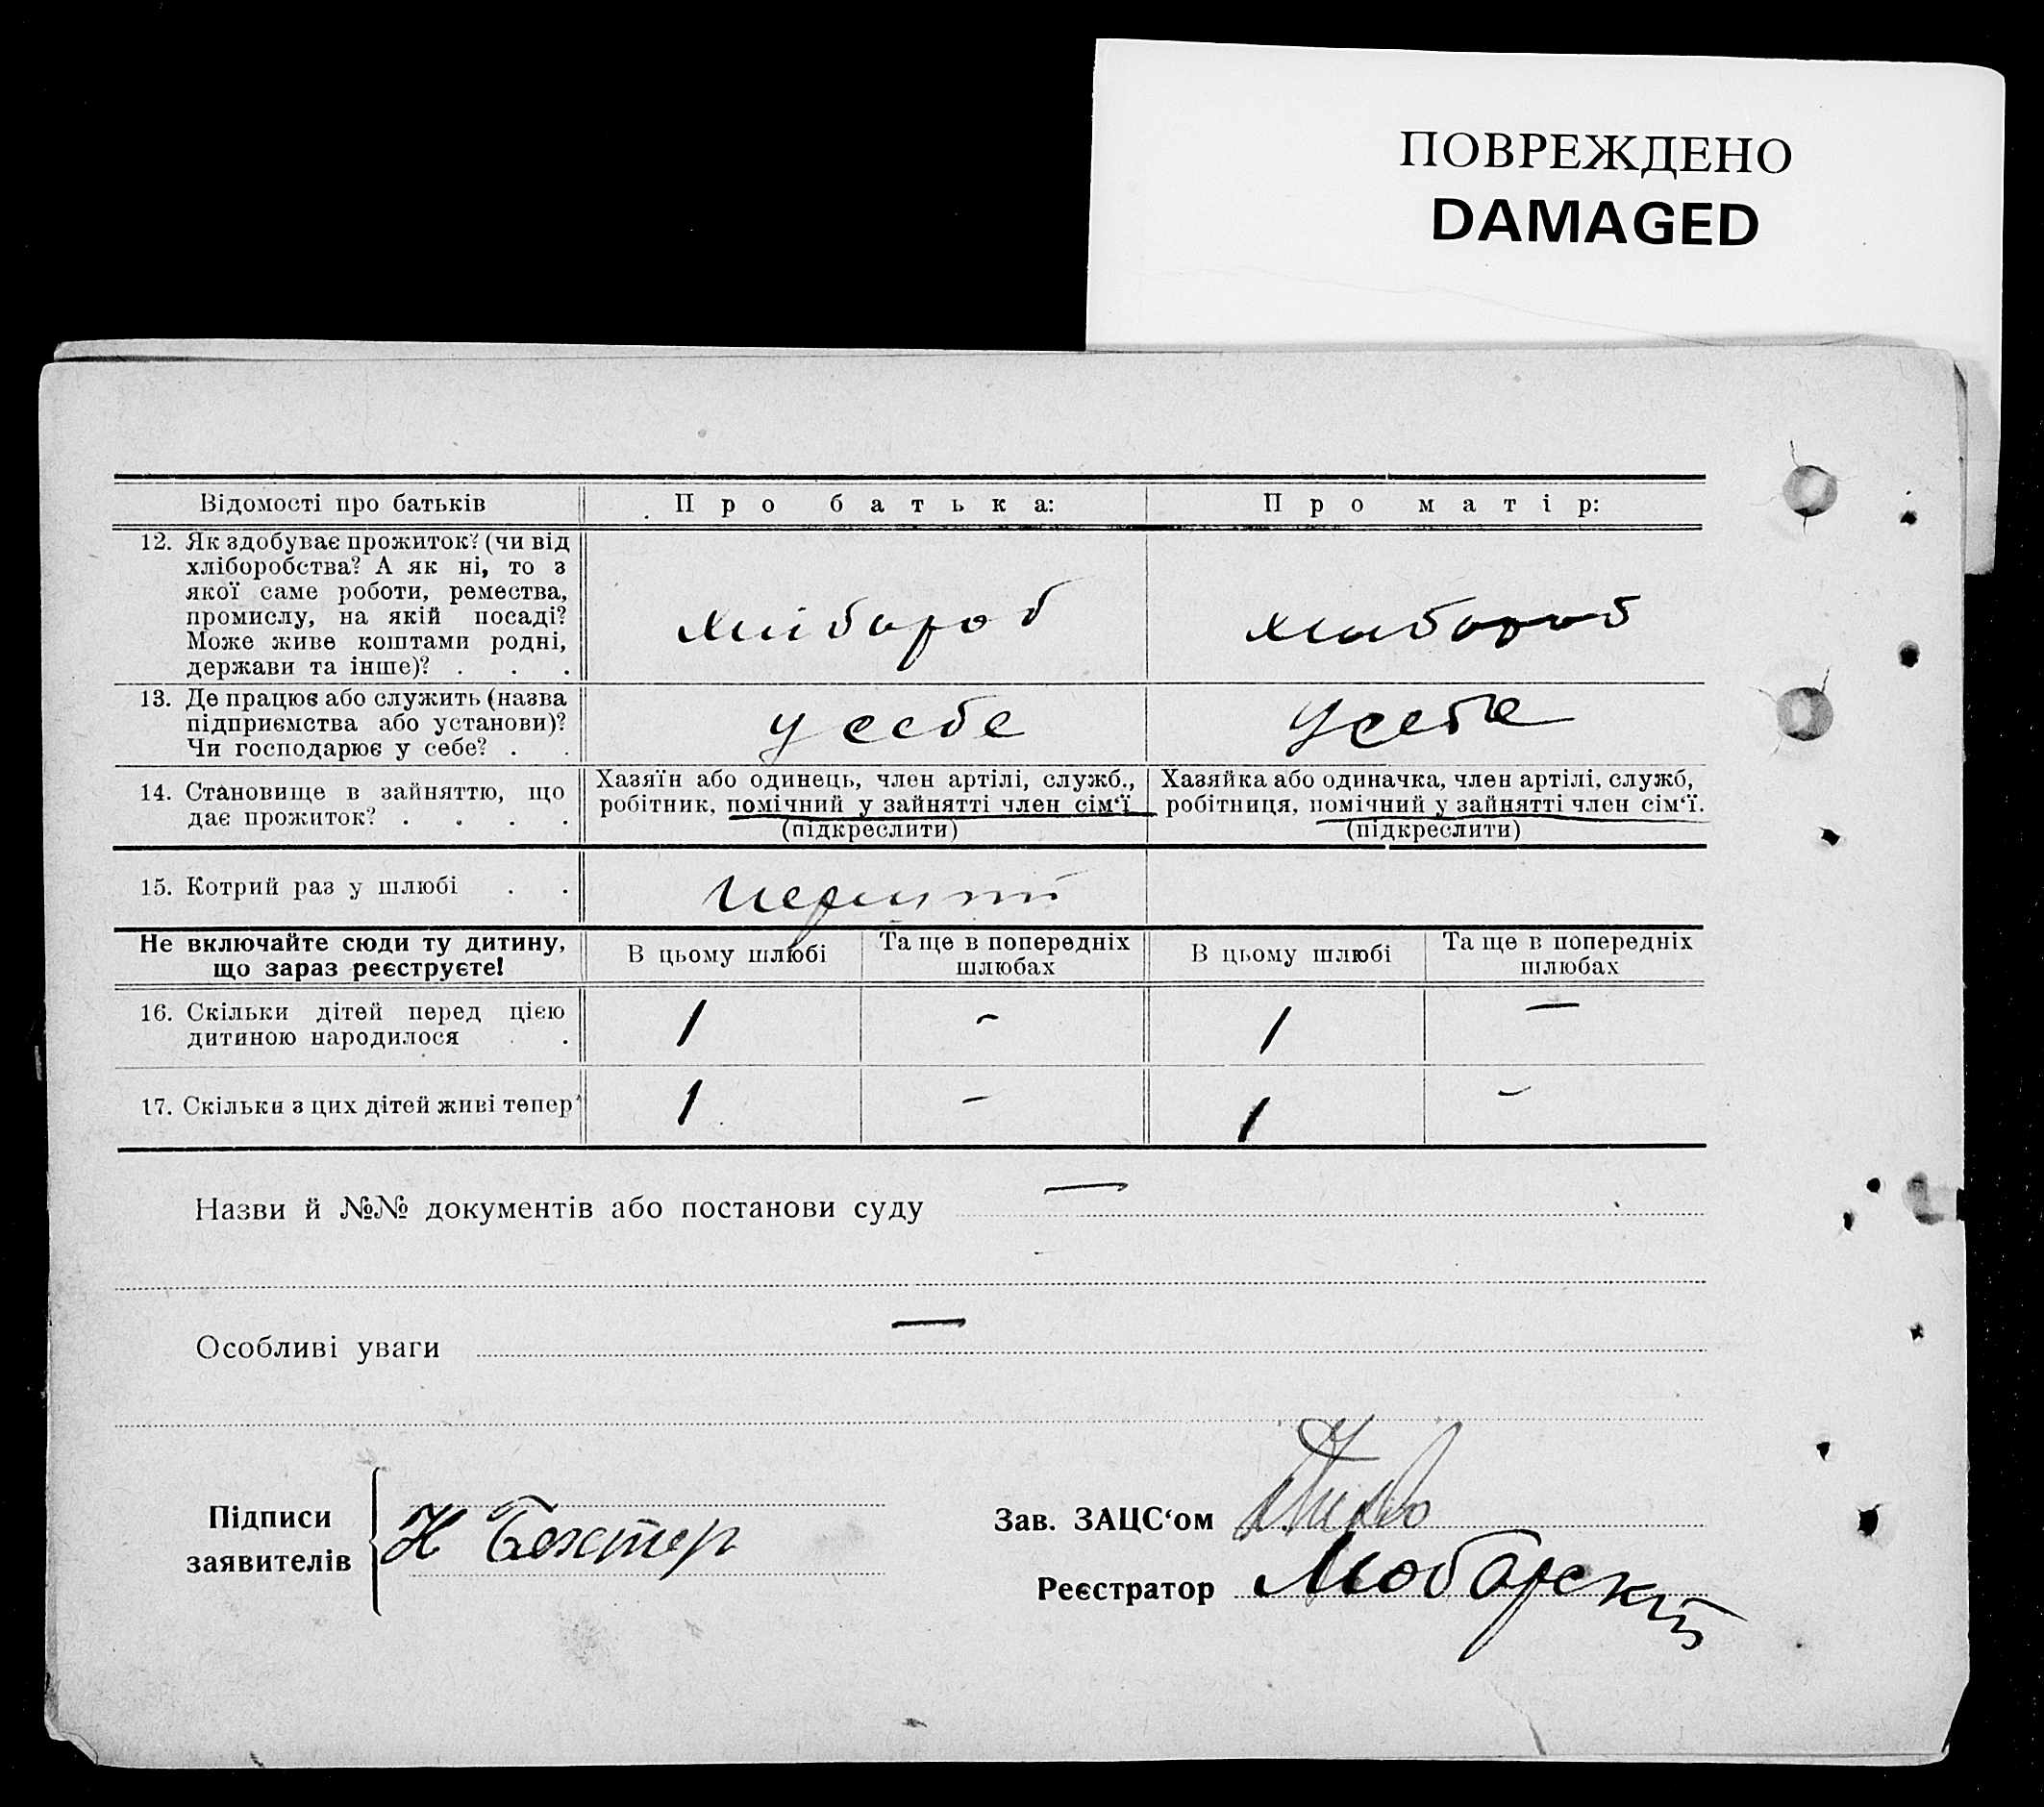 ПОВРЕЖДЕНО
DAMAGED
Відомості про батьків Про батька: Про матір:
12. Як здобуває прожиток? (чи від
хліборобства? А як ні, то з
якої саме роботи, ремества,
промислу, на якій посаді?
Може живе коштами родні,
держави та інше)? . . .
хлібороб хлибороб
13. Де працює або служить (назва
підприємства або установи)?
Чи господарює у себе? . .
у себе у себе
14. Становище в зайняттю, що
дає прожиток? . . . .
Хазяїн або одинець, член артілі, служб.,
робітник, помічний у зайнятті член сім‘ї
(підкреслити)
Хазяйка або одиначка, член артілі, служб,
робітниця, помічний у зайнятті член сім‘ї.
(підкреслити)
15. Котрий раз у шлюбі . . перший
Не включайте сюди ту дитину,
що зараз реєструєте!
В цьому шлюбі Та ще в попередніх
шлюбах
В цьому шлюбі Та ще в попередніх
шлюбах
16. Скільки дітей перед цією
дитиною народилося .
1 - 1 —
17. Скільки з цих дітей живі тепер 1 - 1 -
Назви й №№ документів або постанови суду —
Особливі уваги —
Підписи
заявителів
Н Бехтер
Зав. ЗАЦС‘ом
Реєстратор